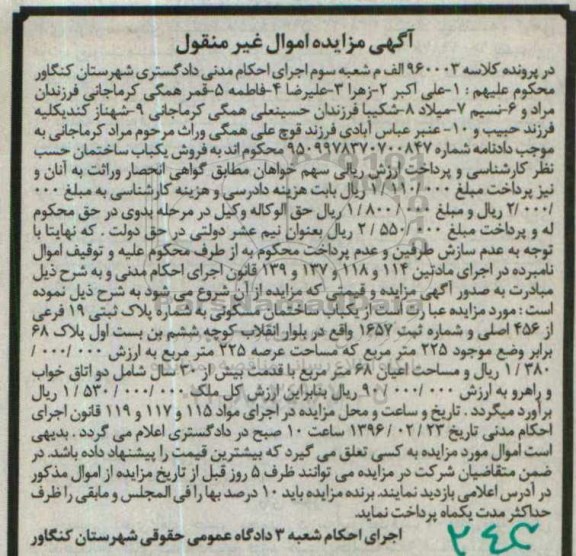 آگهی مزایده اموال غیر منقول
در پرونده کلاسه ۹۶۰۰۰۳ الف م شعبه سوم اجرای احکام مدنی دادگستری شهرستان کنگاور
محکوم علیهم : ۱-علی اکبر ۲-زهرا ۳-علیرضا ۴-فاطمه ۵-قمر همگی کرماجانی فرزندان
مراد و ۶-نسیم ۷-میلاد ۸-شکیبا فرزندان حسینعلی همگی کرماجانی ۹-شهناز کندیکلیه
فرزند حبیب و ۱۰- عنبر عباس آبادی فرزند قوچ علی همگی وراث مرحوم مراد کرماجانی به
موجب دادنامه شماره ۹۵۰۹۹۷۸۳۷۰۷۰۰۸۴۷ محکوم اند به فروش یکباب ساختمان حسب
نظر کارشناسی و پرداخت ارزش ریالی سهم خواهان مطابق گواهی انحصار وراثت به آنان و
نیز پرداخت مبلغ ۰۰۰/ ۱/۱۱۰ ریال بابت هزینه دادرسی و هزینه کارشناسی به مبلغ ۰۰۰
/۰۰۰ /۲ ریال و مبلغ ۰۰۰ /۸۰۰ /۱ ریال حق الوکاله وکیل در مرحله بدوی در حق محکوم
له و پرداخت مبلغ ۰۰۰ /۵۵۰ /۲ ریال بعنوان نیم عشر دولتی در حق دولت . که نهایتا با
توجه به عدم سازش طرفین و عدم پرداخت محکوم به از طرف محکوم علیه و توقیف اموال
نامبرده در اجرای مادتین ۱۱۴ و ۱۱۸ و ۱۳۷ و ۱۳۹ قانون اجرای احکام مدنی و به شرح ذیل
مبادرت به صدور آگهی مزایده و قیمتی که مزایده از آن شروع می شود به شرح ذیل نموده
است : مورد مزایده عبارت است از یکباب ساختمان مسکونی به شماره پلاک ثبتی ۱۹ فرعی
از ۴۵۶ اصلی و شماره ثبت ۱۶۵۷ واقع در بلوار انقلاب کوچه ششم بن بست اول پلاک ۶۸
برابر وضع موجود ۲۲۵ متر مربع که مساحت عرصه ۲۲۵ متر مربع به ارزش ۰۰۰/ ۰۰۰/
۳۸۰ /۱ ریال و مساحت اعیان ۶۸ متر مربع با قدمت بیش از ۳۰ سال شامل دو اتاق خواب
و راهرو به ارزش ۰۰۰/ ۰۰۰/ ۹۰ ریال بنابراین ارزش کل ملک ۰۰۰/ ۰۰۰/ ۵۳۰/ ۱ ریال
برآورد میگردد . تاریخ و ساعت و محل مزایده در اجرای مواد ۱۱۵ و ۱۱۷ و ۱۱۹ قانون اجرای
احکام مدنی تاریخ ۲۳ / ۰۲ / ۱۳۹۶ ساعت ۱۰ صبح در دادگستری اعلام می گردد . بدیهی
است اموال مورد مزایده به کسی تعلق می گیرد که بیشترین قیمت را پیشنهاد داده باشد. در
ضمن متقاضیان شرکت در مزایده می توانند ظرف ۵ روز قبل از تاریخ مزایده از اموال مذکور
در آدرس اعلامی بازدید نمایند. برنده مزایده باید ۱۰ درصد بها را فی المجلس و مابقی را ظرف
حداکثر مدت یکماه پرداخت نماید.
مدرای احکام شعبه ۳ دادگاه عمومی حقوقی شهرستان کنگاور